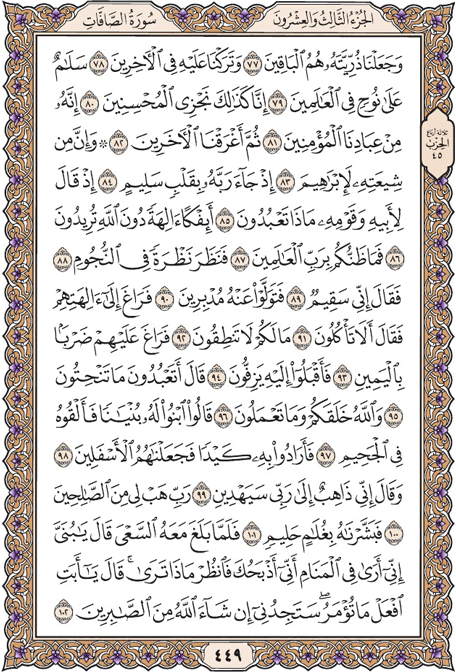 الجزء الثالث والعشرون
سورة الصافات
وَجَعَلْنَا ذُرِّيَّتَهُۥ هُمُ ٱلْبَاقِينَ ٧٧ وَتَرَكْنَا عَلَيْهِ فِى ٱلْـَٔاخِرِينَ ٧٨ سَلَـٰمٌ
عَلَىٰ نُوحٍ فِى ٱلْعَـٰلَمِينَ ٧٩ إِنَّا كَذَٰلِكَ نَجْزِى ٱلْمُحْسِنِينَ ٨٠ إِنَّهُۥ
مِنْ عِبَادِنَا ٱلْمُؤْمِنِينَ ٨١ ثُمَّ أَغْرَقْنَا ٱلْـَٔاخَرِينَ ٨٢ ۞ وَإِنَّ مِن
شِيعَتِهِۦ لَإِبْرَٰهِيمَ ٨٣ إِذْ جَآءَ رَبَّهُۥ بِقَلْبٍ سَلِيمٍ ٨٤ إِذْ قَالَ
لِأَبِيهِ وَقَوْمِهِۦ مَاذَا تَعْبُدُونَ ٨٥ أَئِفْكًا ءَالِهَةً دُونَ ٱللَّهِ تُرِيدُونَ
٨٦ فَمَا ظَنُّكُم بِرَبِّ ٱلْعَـٰلَمِينَ ٨٧ فَنَظَرَ نَظْرَةً فِى ٱلنُّجُومِ ٨٨
فَقَالَ إِنِّى سَقِيمٌ ٨٩ فَتَوَلَّوْا۟ عَنْهُ مُدْبِرِينَ ٩٠ فَرَاغَ إِلَىٰٓ ءَالِهَتِهِمْ
فَقَالَ أَلَا تَأْكُلُونَ ٩١ مَا لَكُمْ لَا تَنطِقُونَ ٩٢ فَرَاغَ عَلَيْهِمْ ضَرْبًۢا
بِٱلْيَمِينِ ٩٣ فَأَقْبَلُوٓا۟ إِلَيْهِ يَزِفُّونَ ٩٤ قَالَ أَتَعْبُدُونَ مَا تَنْحِتُونَ
٩٥ وَٱللَّهُ خَلَقَكُمْ وَمَا تَعْمَلُونَ ٩٦ قَالُوا۟ ٱبْنُوا۟ لَهُۥ بُنْيَـٰنًا فَأَلْقُوهُ
فِى ٱلْجَحِيمِ ٩٧ فَأَرَادُوا۟ بِهِۦ كَيْدًا فَجَعَلْنَـٰهُمُ ٱلْأَسْفَلِينَ ٩٨
وَقَالَ إِنِّى ذَاهِبٌ إِلَىٰ رَبِّى سَيَهْدِينِ ٩٩ رَبِّ هَبْ لِى مِنَ ٱلصَّـٰلِحِينَ
١٠٠ فَبَشَّرْنَـٰهُ بِغُلَـٰمٍ حَلِيمٍ ١٠١ فَلَمَّا بَلَغَ مَعَهُ ٱلسَّعْىَ قَالَ يَـٰبُنَىَّ
إِنِّىٓ أَرَىٰ فِى ٱلْمَنَامِ أَنِّىٓ أَذْبَحُكَ فَٱنظُرْ مَاذَا تَرَىٰ ۚ قَالَ يَـٰٓأَبَتِ
ٱفْعَلْ مَا تُؤْمَرُ ۖ سَتَجِدُنِىٓ إِن شَآءَ ٱللَّهُ مِنَ ٱلصَّـٰبِرِينَ ١٠٢
ثلاثة أرباع
الحزب
٤٥
٤٤٩